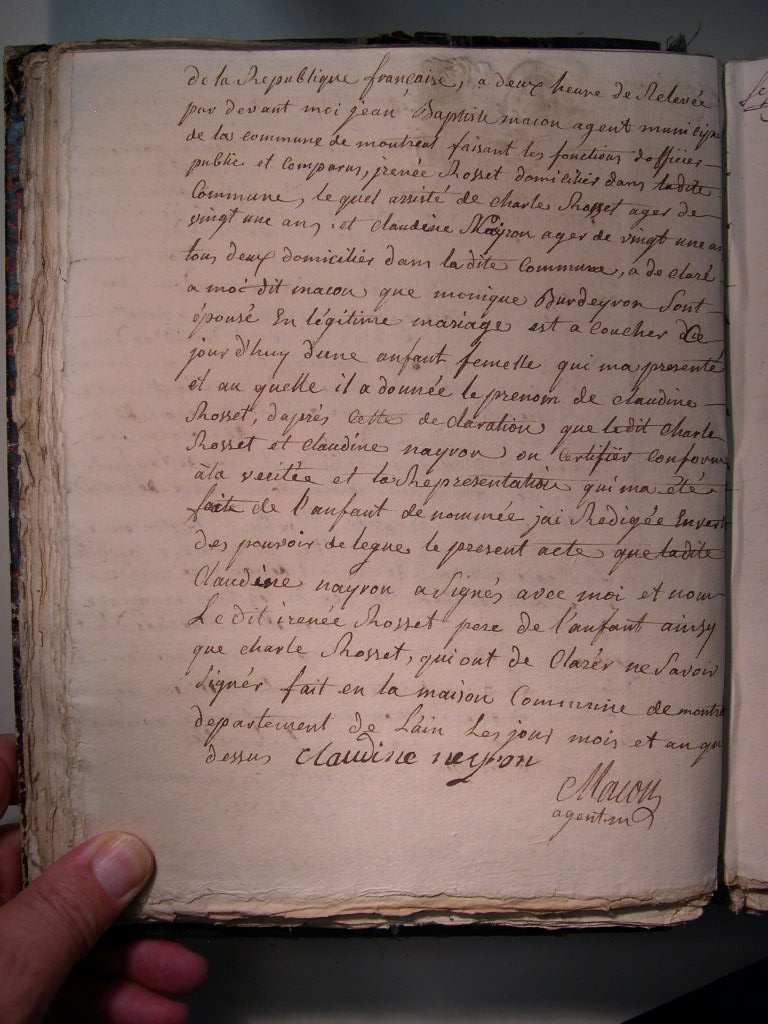 de la Republique francaise, a deux heure de Relevée
par devant moi jean Baptiste macon agent municip
de la commune de montreal faisant les fonctions dofficier
public et comparus, jrenée Rosset domiciliés dans ladite
Commune, le quel assisté de charle Rosset ager de
vingt une ans, et claudine Nayron ager de vingt une an
tous deux domiciliés dans la dite Commune, a de claré
a moi dit macon que monique Burdeyron sont
épousé En légitime mariage est a coucher de
jour d'huy dune anfant femelle qui ma presenté
et au quelle il a donnée le prenom de claudine
Rosset, daprés cette de claration que ledit charle
Rosset et claudine nayron on certifier conform
à la veritée et la Representation qui ma été
faite de l'anfant denommée jai Redigée En vert
des pouvoir delegue le present acte que ladite
Claudine nayron a signés avec moi et non
Le dit irenée Rosset pere de l'anfant ainsy
que charle Rosset, qui ont de Clarér ne savoir
signér fait en la maison Commune de montre
departement de Lain Les jour mois et an que
dessus claudine neyron
Macon
agent m